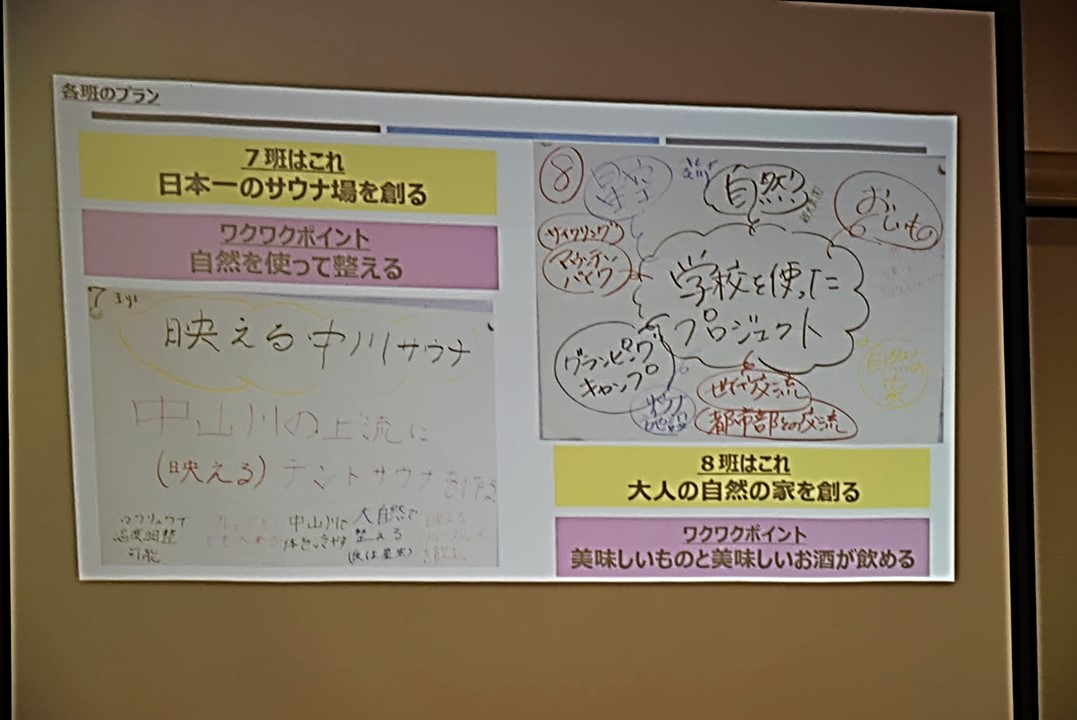 各班のプラン
7班はこれ
日本一のサウナ場を創る
ワクワクポイント
自然を使って整える
7
映える中川サウナ
中山川の上流に
(映える)テントサウナを作る
ロウリュウで
温度調整
可能
中山川で
体を冷やす
大自然で
整える
(夜は星空)
8
星空
自然
おいしいもの
サイクリング
マウンテン
バイク
学校を使った
プロジェクト
グランピング
キャンプ
サウナ
施設
世代交流
都市部との交流
自然の
家
8班はこれ
大人の自然の家を創る
ワクワクポイント
美味しいものと美味しいお酒が飲める